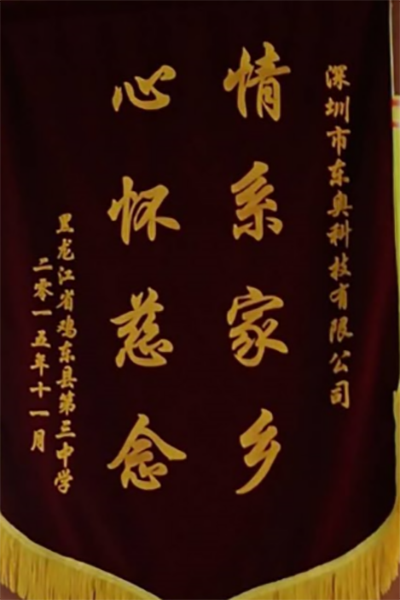 深圳市东奥科技有限公司
情系家乡
心怀慈念
黑龙江省鸡东县第三中学
二零一五年十一月